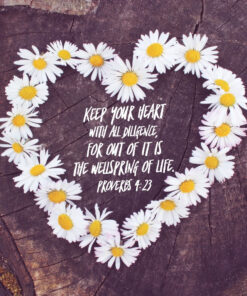 KEEP YOUR HEART
WITH ALL DILIGENCE,
FOR OUT OF IT IS
THE WELLSPRING OF LIFE.
PROVERBS 4:23